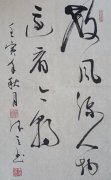 数风流人物
还看今朝
壬寅年秋月